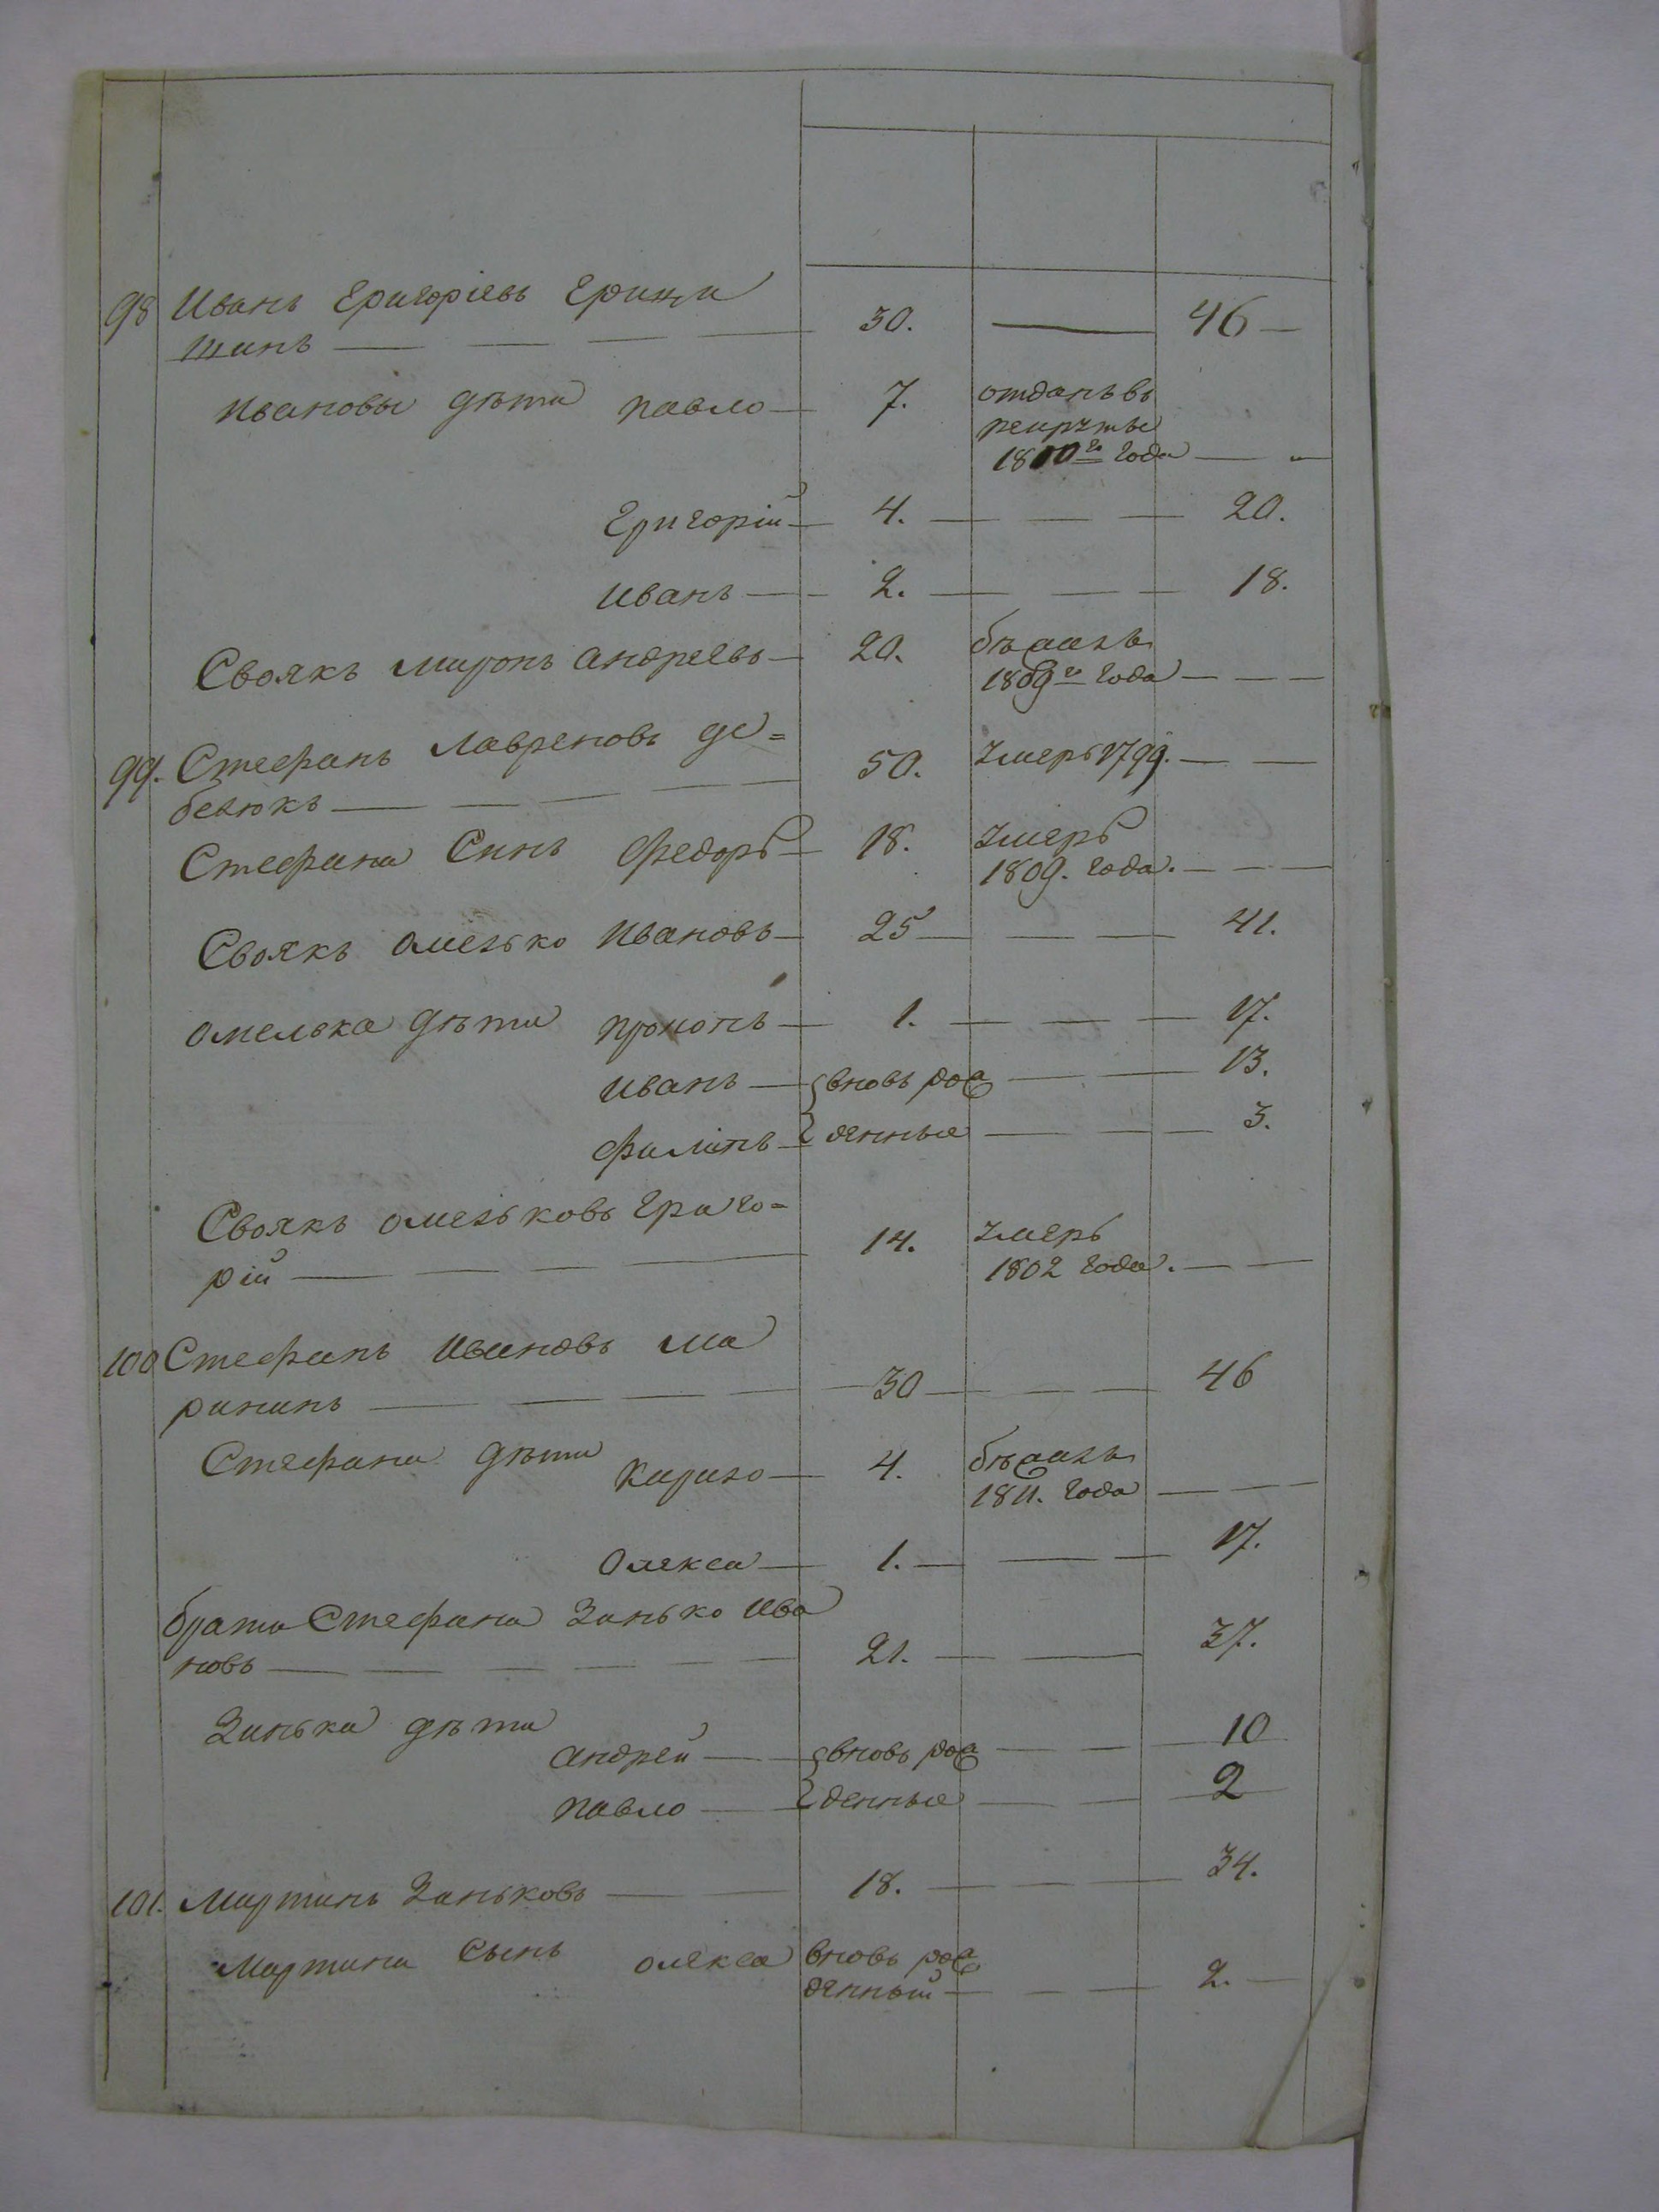 98 Иванъ Григорiевъ Грици
шинъ — 30. — 46 —
Ивановы дѣти Павло — 7. отданъ въ
рекруты
1810го года — "
Григорiй — 4. — 20.
Иванъ — 2. — 18.
Своякъ Миронъ Андреевъ — 20. бѣжалъ
1809го года —
99. Стефанъ Лавреновъ Де=
белюкъ — 50. Умеръ 1799. —
Стефана Синъ Федоръ — 18. Умеръ
1809. года. —
Своякъ Омелько Ивановъ — 25 — 41.
Омелька дѣти Прокопъ — 1. — 17.
Иванъ — вновь рож — 13.
Филипъ — денные — 3.
Своякъ Омельковъ Григо=
рiй — 14. Умеръ
1802 года. —
100 Стефанъ Ивановъ Ма
рининъ — 30 — 46
Стефана дѣти Кирило — 4. бѣжалъ
1811. года —
Олекса — 1. — 17.
брата Стефана Занько Ива
новъ — 21. — 37.
Занька дѣти
Андрей — вновь рож — 10
Павло — денные — 2
101. Мартинъ Заньковъ — 18. — 34.
Мартина Сынъ Олекса вновь рож
денный — 2. —